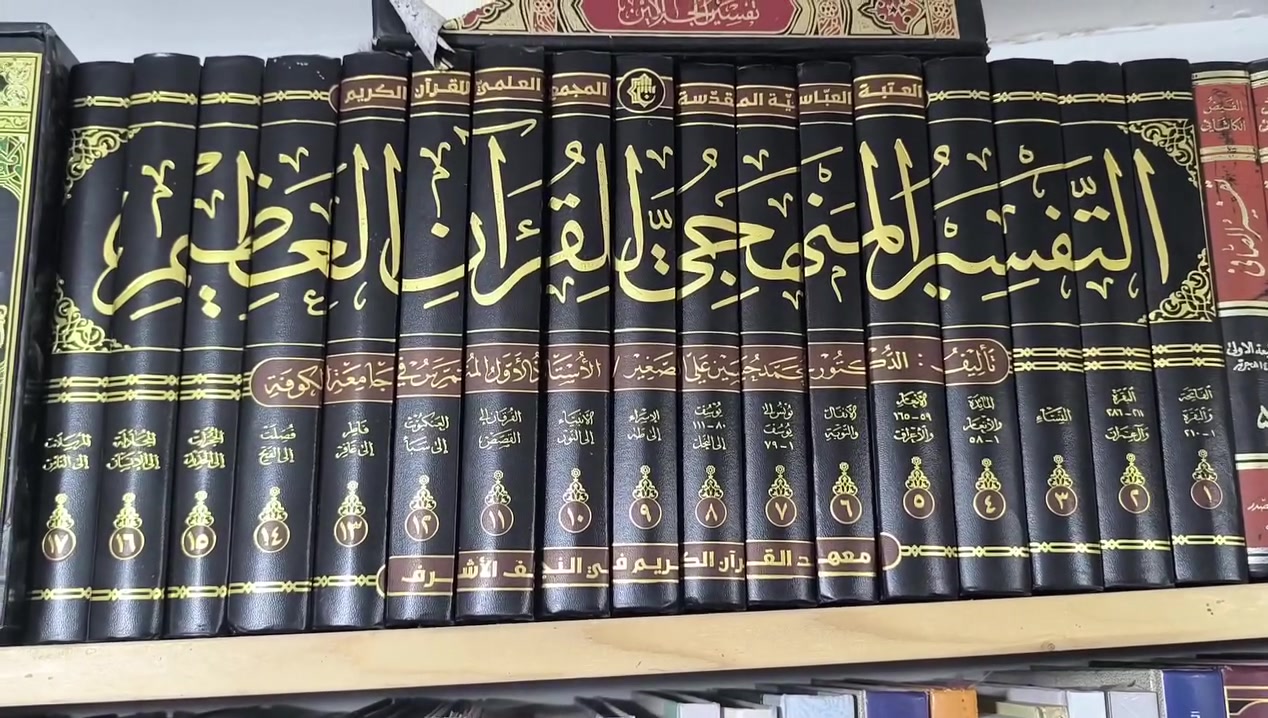 تفسير الجلالين
العتبة العباسية المقدسة المجمع العلمي للقرآن الكريم
التفسير المنهجي للقرآن العظيم
تأليف: الدكتور محمد حسين علي الصغير / الأستاذ الأول المتمرس في جامعة الكوفة
الفاتحة
والبقرة
١-٢١٠
١
البقرة
٢١١-٢٨٦
وآل عمران
٢
النساء
٣
المائدة
والأنعام
١-٥٨
٤
الأنعام
٥٩-١٦٥
والأعراف
٥
الأنفال
والتوبة
٦
يونس الى
يوسف
١-٧٩
٧
يوسف
٨٠-١١١
إلى النحل
٨
الإسراء
إلى طه
٩
الأنبياء
إلى النور
١٠
الفرقان إلى
القصص
١١
العنكبوت
إلى سبأ
١٢
فاطر
إلى غافر
١٣
فصلت
إلى الفتح
١٤
الحجرات
إلى الحديد
١٥
المجادلة
إلى الإنسان
١٦
المرسلات
إلى الناس
١٧
معهد القرآن الكريم في النجف الأشرف
الفيض
الكاشاني
تفسير الصافي